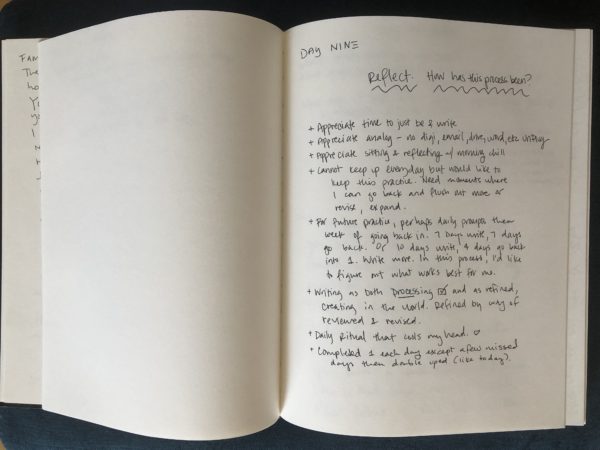 Fam
The
ho
Yo
yo
I
DAY NINE
Reflect. How has this process been?
+ Appreciate time to just be & write
+ Appreciate analog – no digi, email, drive, word, etc writing
+ Appreciate sitting & reflecting w/ morning chill
+ Cannot keep up everyday but would like to
keep this practice. Need moments where
I can go back and flush out more or
revise, expand.
+ For future practice, perhaps daily prompts then
week of going back in. 7 days write, 7 days
go back. Or 10 days write, 4 days go back
into 1. Write more. In this process, I'd like
to figure out what works best for me.
+ Writing as both processing ☑ and as refined,
creating in the world. Refined by way of
reviewed & revised.
+ Daily Ritual that cools my head. ♡
+ Completed 1 each day except a few missed
days then double upped (like today).